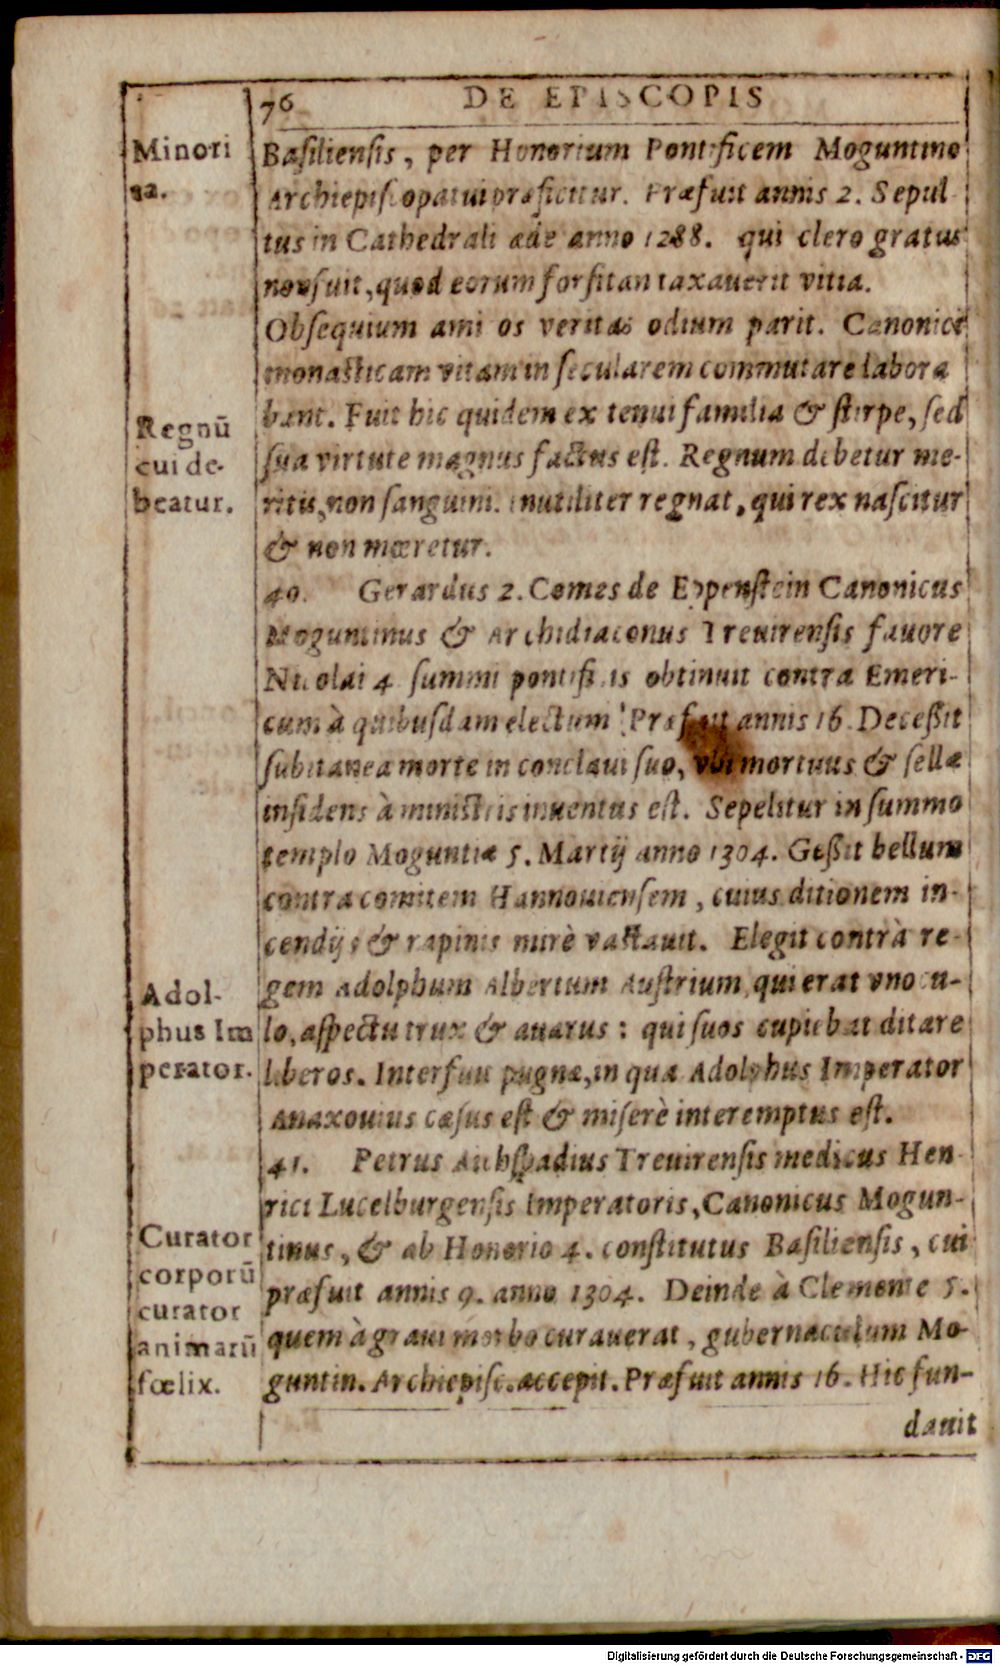 76 DE EPISCOPIS
Minori
ta.
Basiliensis, per Honorium Pontificem Moguntino
Archiepiscopatui præficitur. Præfuit annis 2. Sepul
tus in Cathedrali æde anno 1288. qui clero gratus
non fuit, quod eorum forsitan taxauerit vitia.
Obsequium ami os veritas odium parit. Canonici
monasticam vitam in secularem commutare labora
bant. Fuit hic quidem ex tenui familia & stirpe, sed
Regnū
cui de-
beatur.
sua virtute magnus factus est. Regnum debetur me-
ritis, non sanguini. inutiliter regnat, qui rex nascitur
& non mœretur.
40. Gerardus 2. Comes de Eppenstein Canonicus
Moguntinus & Archidiaconus Treuirensis fauore
Nicolai 4 summi pontificis obtinuit contra Emeri-
cum à quibusdam electum. Præfuit annis 16. Decessit
subitanea morte in conclaui suo, vbi mortuus & sellæ
insidens à ministris inuentus est. Sepelitur in summo
templo Moguntiæ 5. Martij anno 1304. Gessit bellum
contra comitem Hannouiensem, cuius ditionem in-
cendijs & rapinis mirè vastauit. Elegit contrà re-
Adol-
phus Im
perator.
gem Adolphum Albertum Austrium, qui erat vnocu-
lo, aspectu trux & auarus: qui suos cupiebat ditare
liberos. Interfuit pugnæ, in qua Adolphus Imperator
Anaxouius cæsus est & miserè interemptus est.
41. Petrus Aichspadius Treuirensis medicus Hen
rici Lucelburgensis Imperatoris, Canonicus Mogun-
Curator
corporū
curator
animarū
fœlix.
tinus, & ab Honorio 4. constitutus Basiliensis, cui
præfuit annis 9. anno 1304. Deinde à Clemente 5.
quem à graui morbo curauerat, gubernaculum Mo-
guntin. Archiepisc. accepit. Præfuit annis 16. Hic fun-
dauit
Digitalisierung gefördert durch die Deutsche Forschungsgemeinschaft - DFG